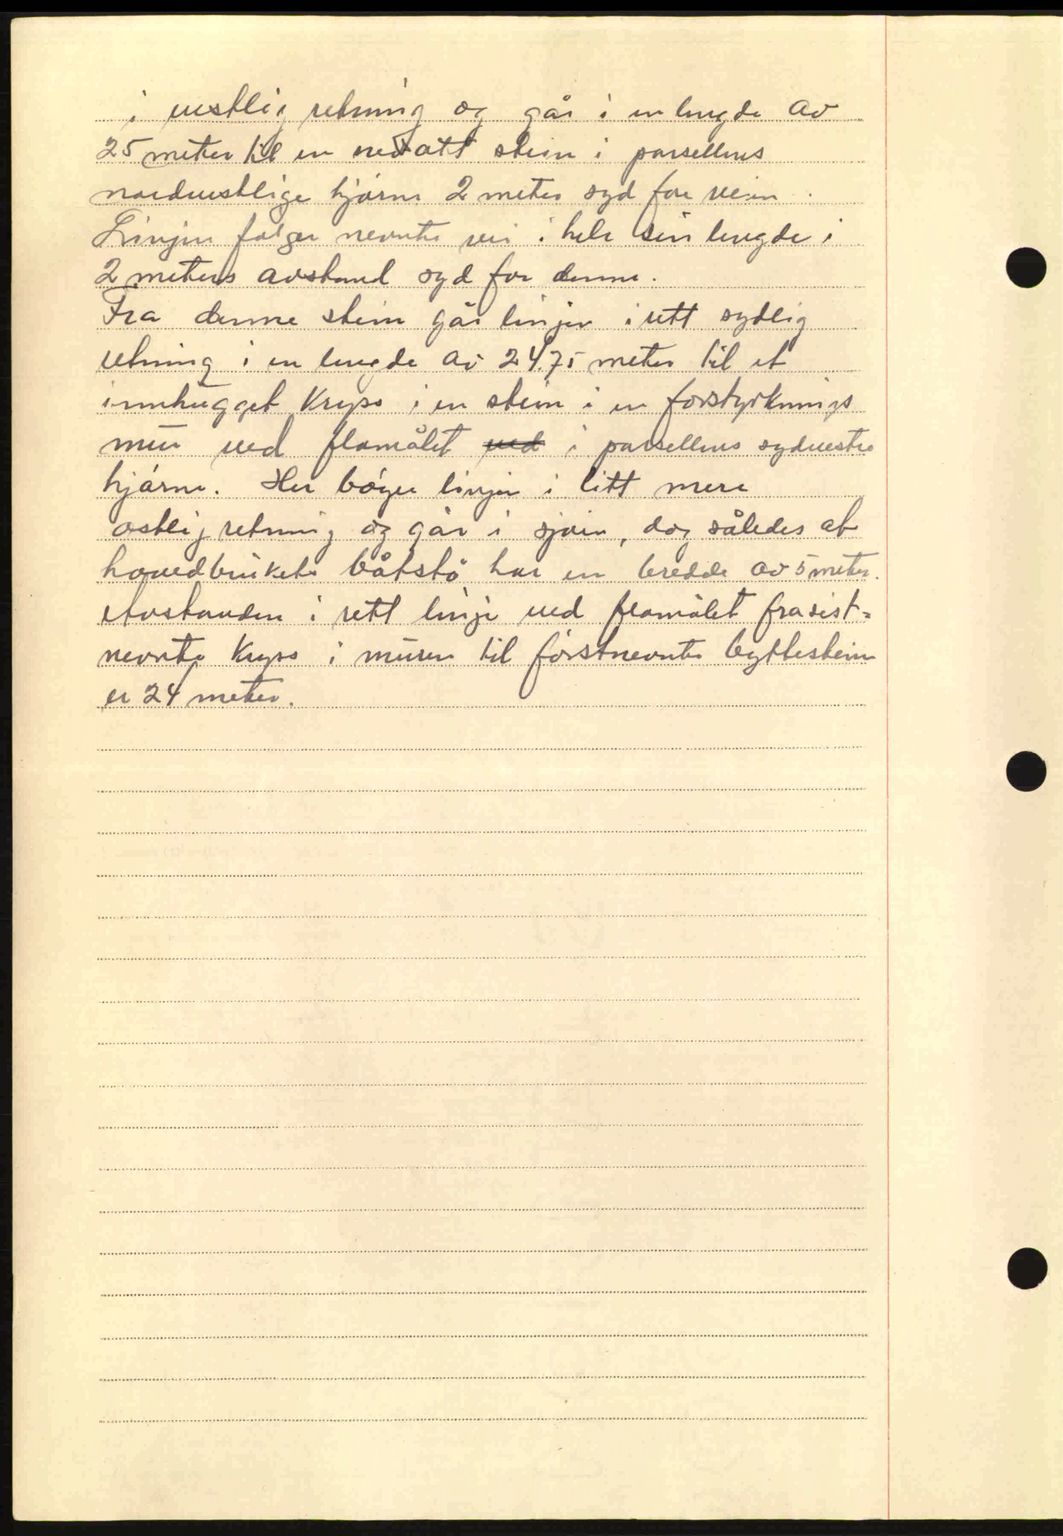 i vestlig retning og går i en lengde av
25 meter til en nedsatt stein i parsellens
nordvestlige hjørne 2 meter syd for veien.
Linjen følger nevnte vei i hele sin lengde i
2 meters avstand syd for denne.
Fra denne stein går linjen i rett sydlig
retning i en lengde av 24.75 meter til et
innhugget kryss i en stein i en forstyrknings
mur ved flomålet ved i parsellens sydvestre
hjørne. Her bøyer linjen i litt mere
østlig retning og går i sjøen, dog således at
hovedbrukets båtstø har en bredde av 5 meter.
Avstanden i rett linje ved flomålet fra sist=
nevnte kryss i muren til førstnevnte byttestein
er 24 meter.